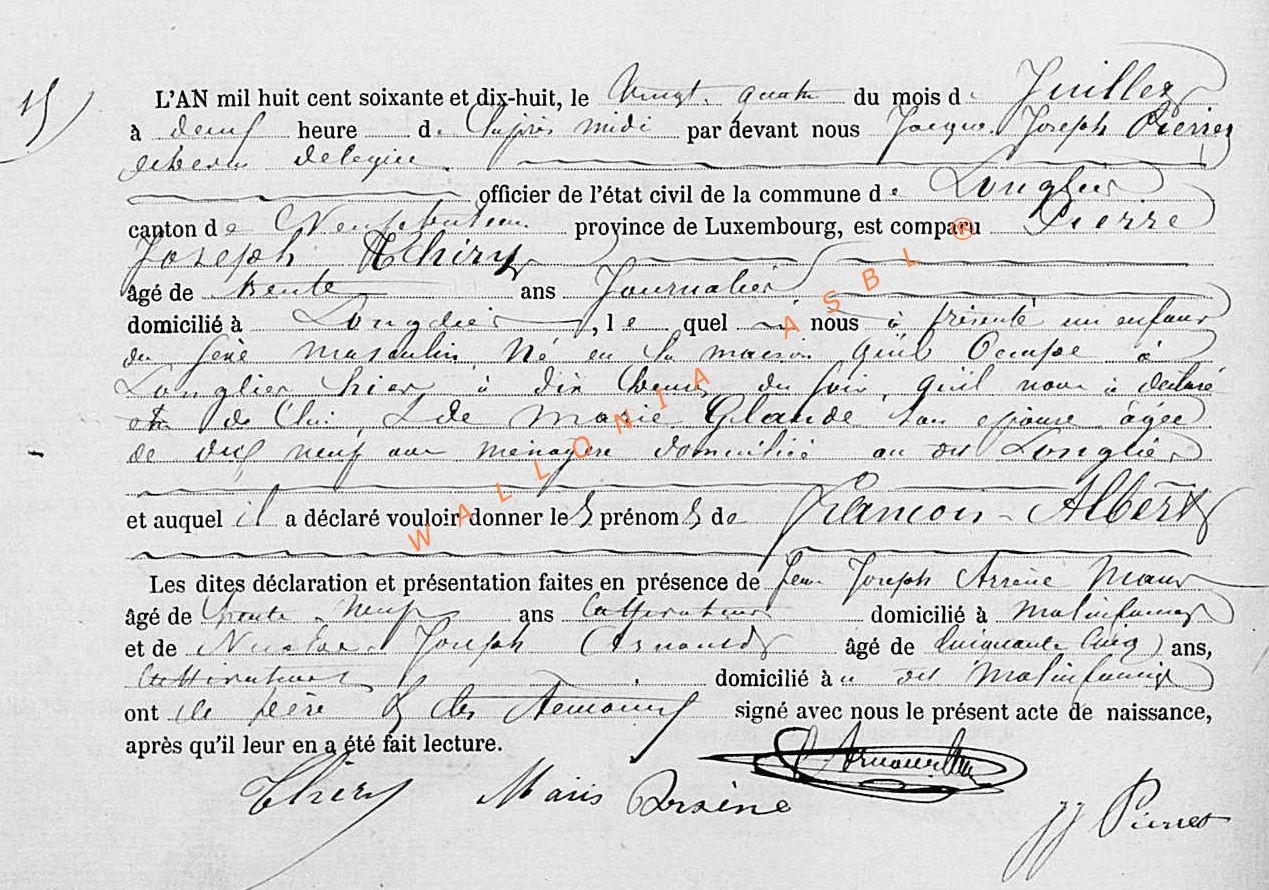 15
L'AN mil huit cent soixante et dix-huit, le Vingt quatre du mois de Juillet
à deux heure de l'après midi par devant nous Jacques Joseph Pierret
échevin délégué
officier de l'état civil de la commune de Longlier
canton de Neufchateau province de Luxembourg, est comparu Pierre
Joseph Thiry
âgé de trente ans Journalier
domicilié à Longlier, le quel nous à présenté un enfant
du sexe masculin Né en la maison qu'il Occupe à
Longlier hier à dix heures du soir, qu'il nous à déclaré
être de lui, & de Marie Glaude son épouse âgée
de dix neuf ans ménagère domiciliée au dit Longlier
et auquel il a déclaré vouloir donner les prénoms de François-Albert
Les dites déclaration et présentation faites en présence de Jean Joseph Arsène
âgé de trente-Neuf ans Cultivateur domicilié à Molinfaing
et de Nicolas Joseph Arnould âgé de Cinquante Cinq ans,
Cultivateur domicilié à au dit Molinfaing
ont le père & les témoins signé avec nous le présent acte de naissance,
après qu'il leur en a été fait lecture.
Thiry Arsène JJ Pierret
WALLONIA ASBL ®